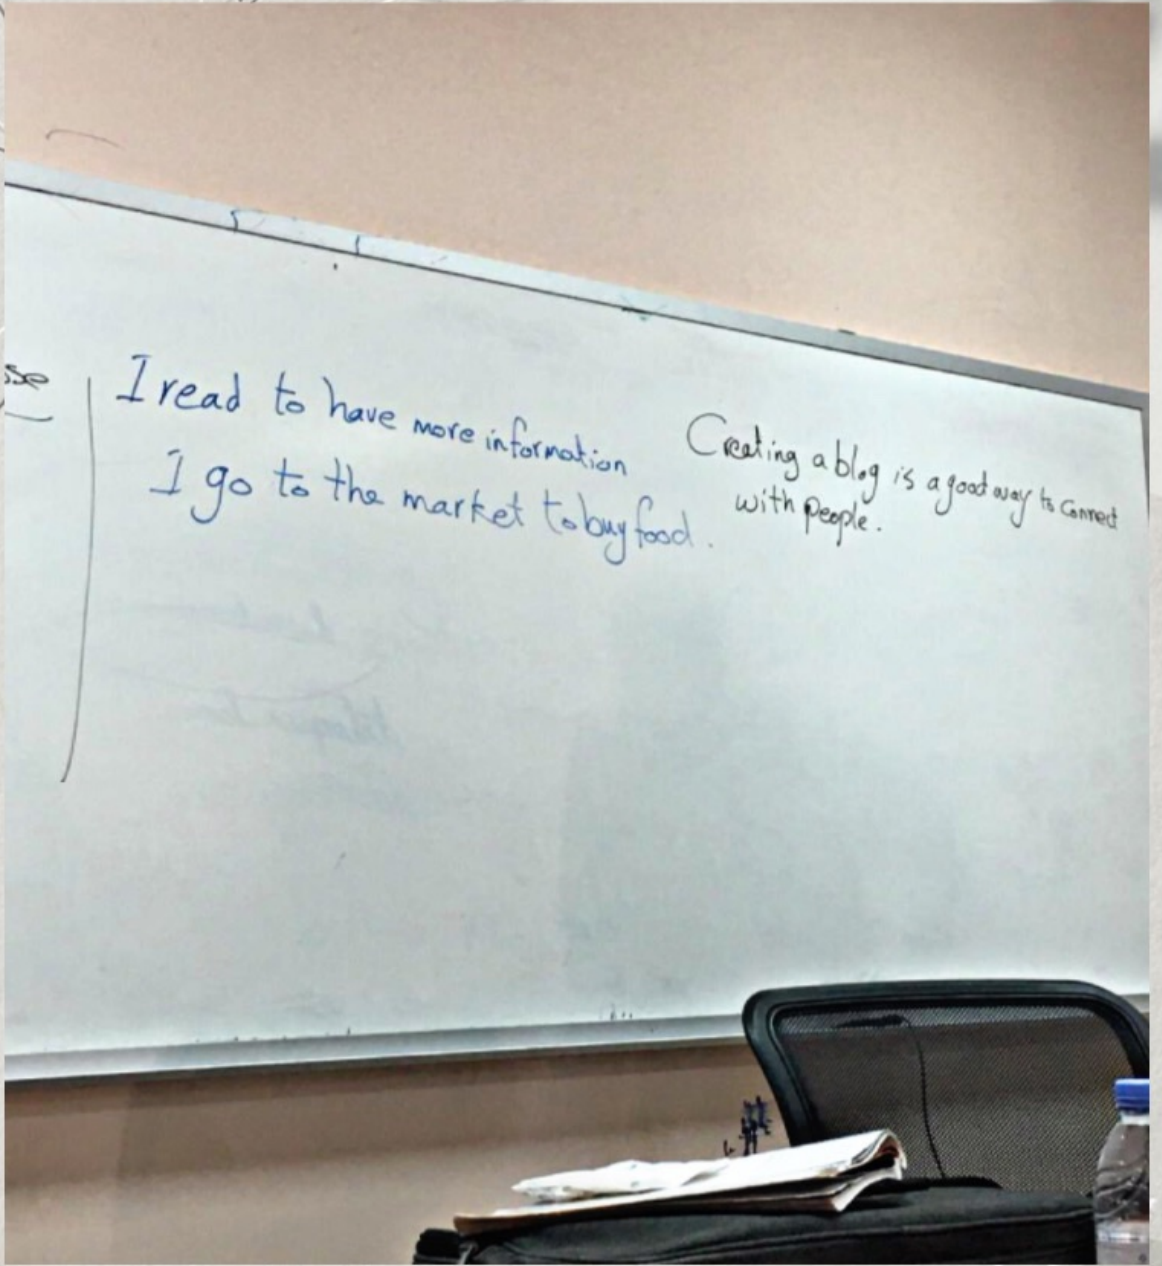 I read to have more information
I go to the market to buy food.
Creating a blog is a good way to connect
with people.